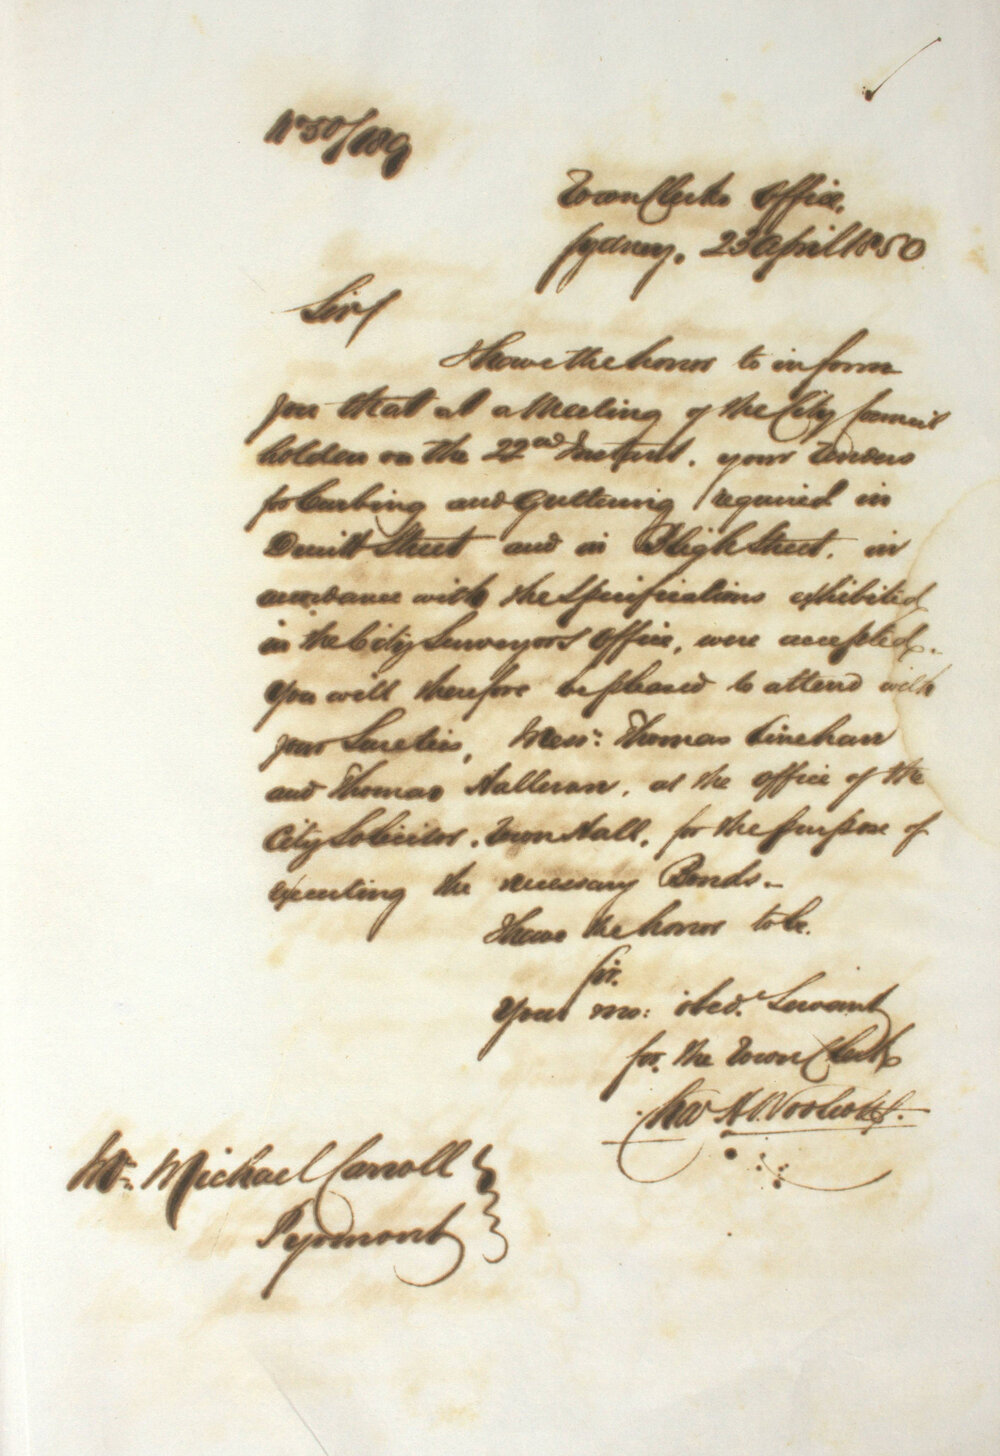 No 50/189
Town Clerks Office,
Sydney, 23 April 1850
Sir/
I have the honor to inform
you that at a Meeting of the City Council
holden on the 22nd Instant, your Tenders
for Curbing and Guttering required in
Druitt Street and in Bligh Street, in
accordance with the Specifications exhibited
in the City Surveyors Office, were accepted.
You will therefore be pleased to attend with
your Sureties, Messrs: Thomas Linehan
and Thomas Halleran, at the office of the
City Solicitor, Town Hall, for the purpose of
executing the necessary Bonds.
I have the honor to be.
Sir.
Your mo: obed. Servant
for the Town Clerk
Mr. Michael Carroll
Pyrmont